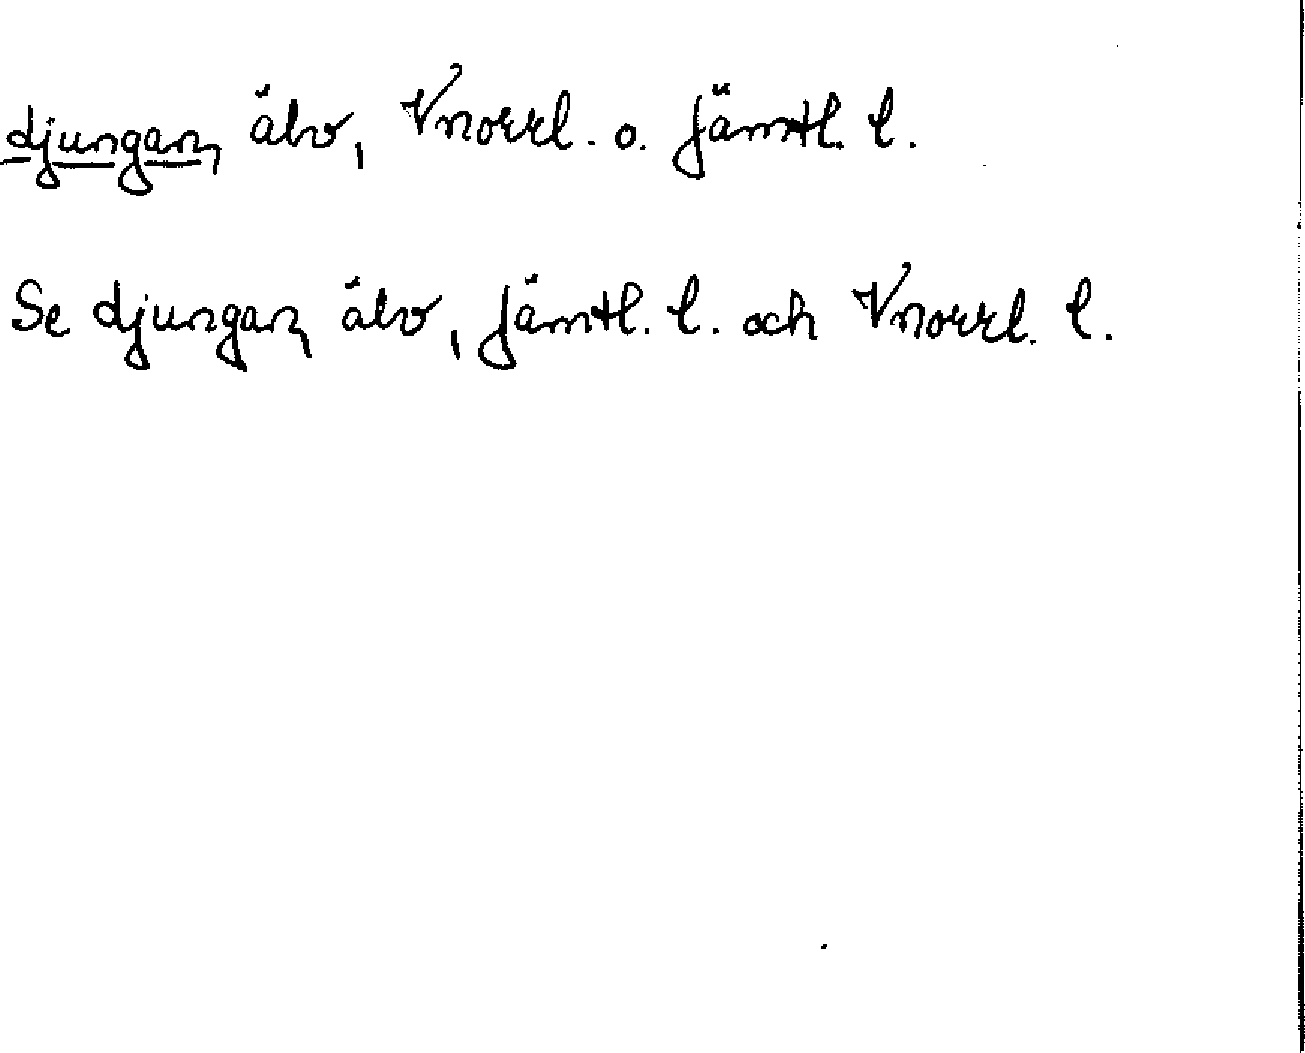 djungan, älv, Vnorrl. o. Jämtl. l.
Se djungan, älv, Jämtl. l. och Vnorrl. l.